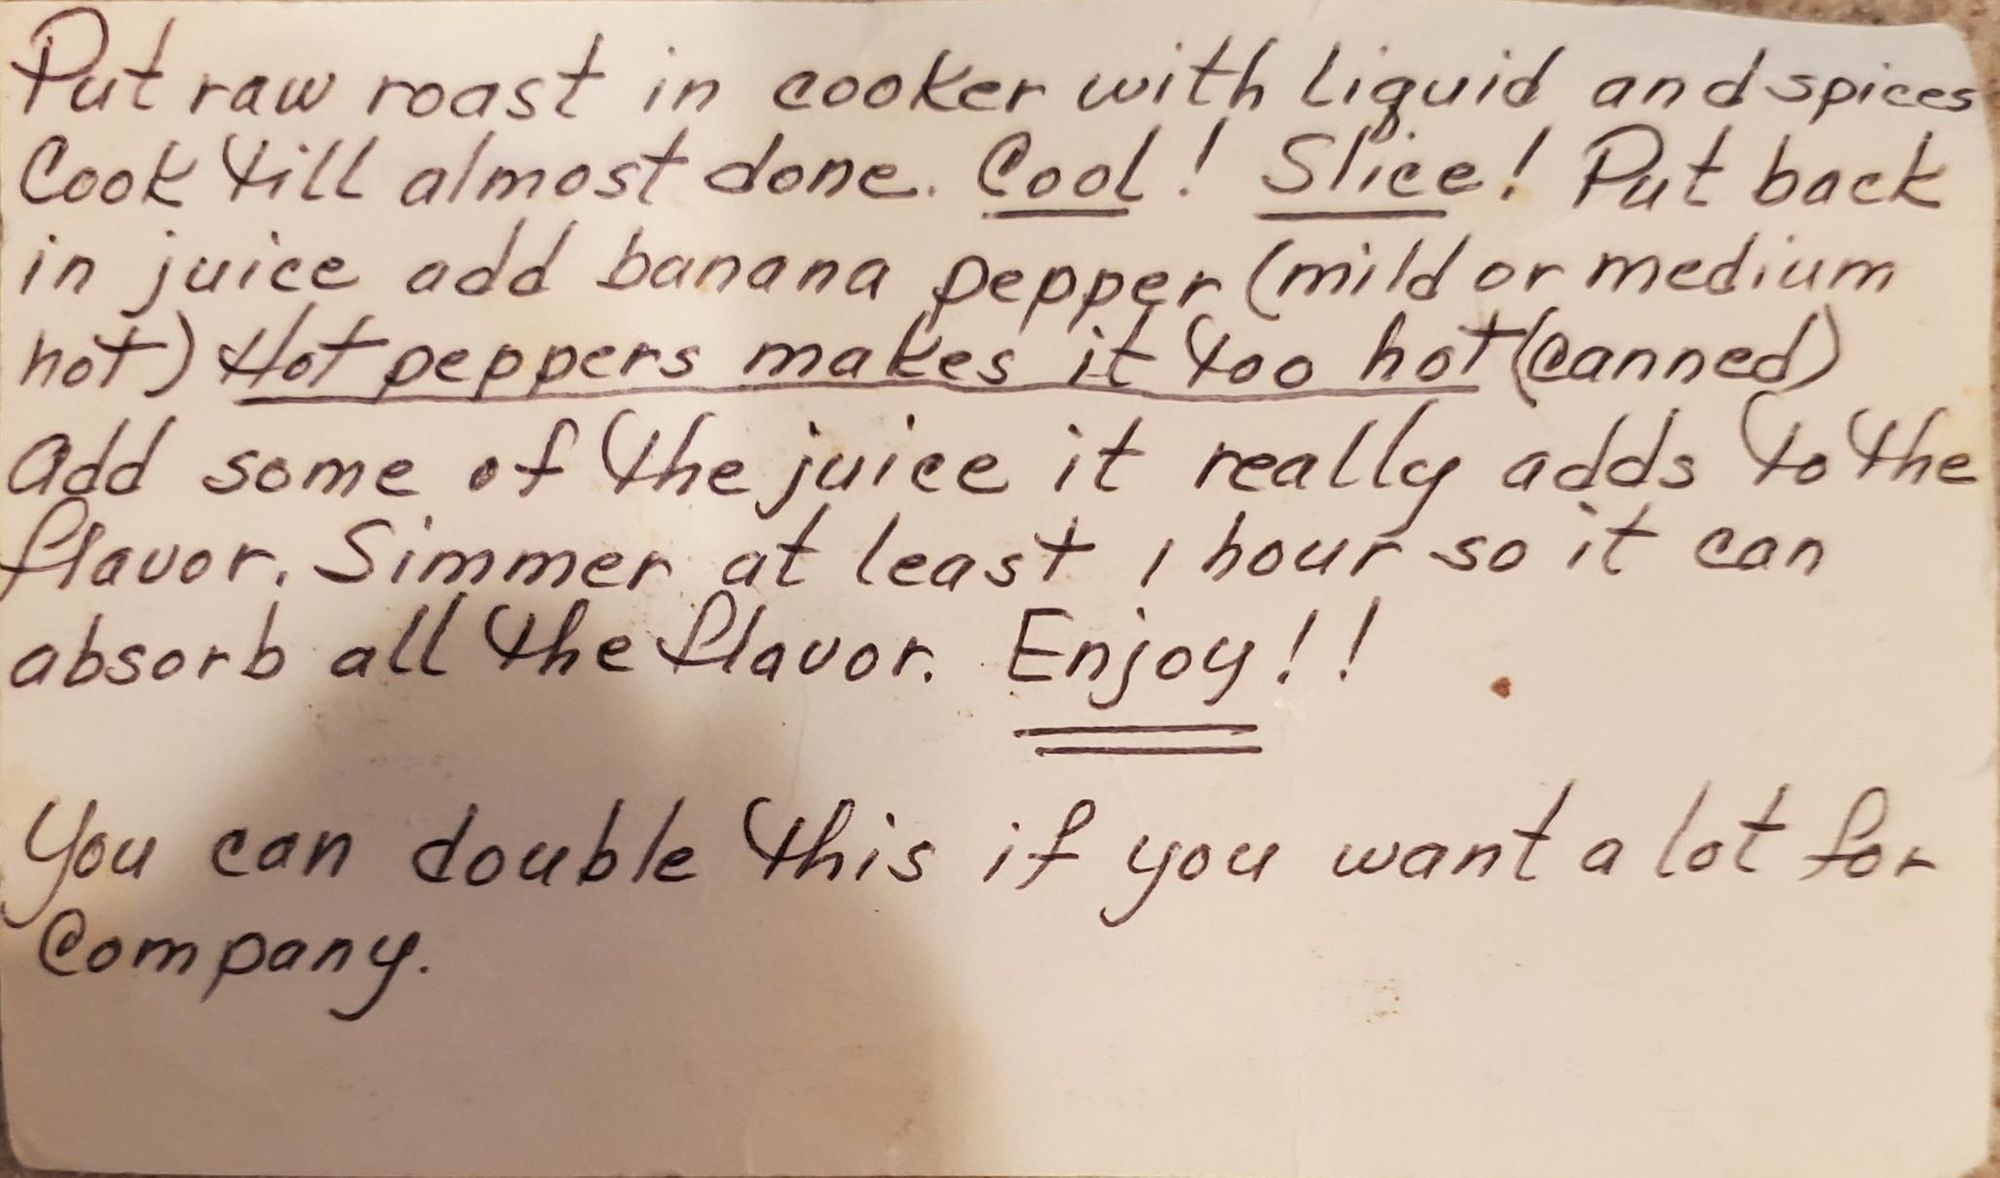 Put raw roast in cooker with liquid and spices
Cook till almost done. Cool! Slice! Put back
in juice add banana pepper (mild or medium
hot) Hot peppers makes it too hot (canned)
Add some of the juice it really adds to the
flavor. Simmer at least 1 hour so it can
absorb all the flavor. Enjoy!!
You can double this if you want a lot for
Company.